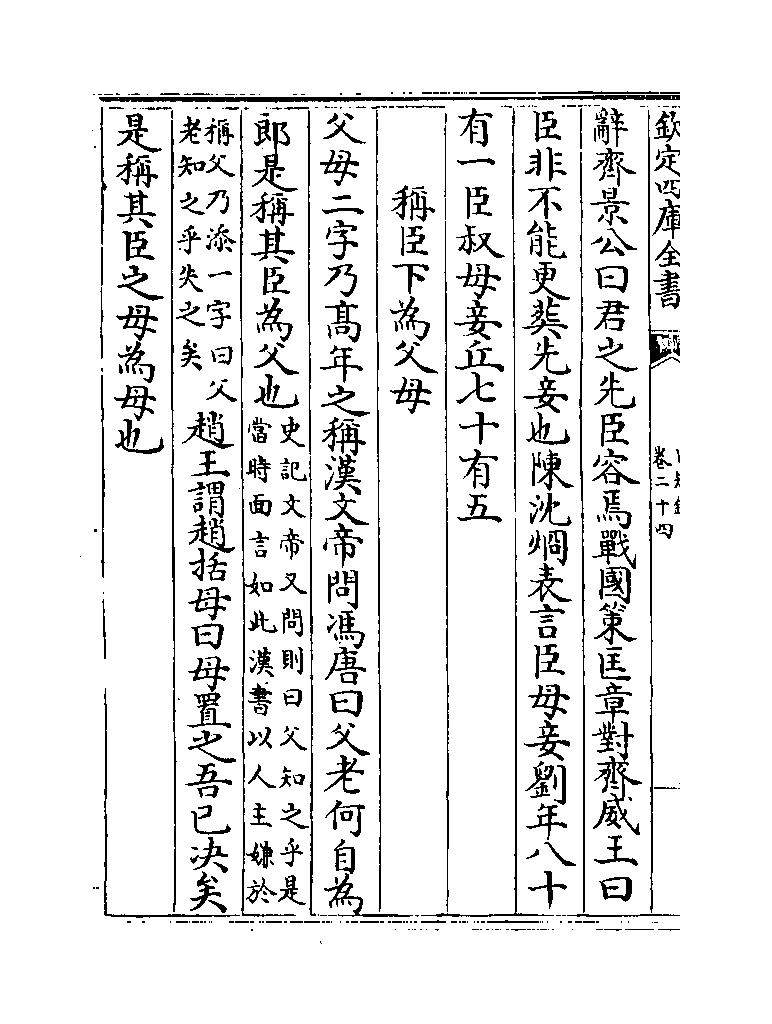 欽定四庫全書
卷二十四
辭齊景公曰君之先臣容焉戰國策匡章對齊威王曰
臣非不能更葬先妾也陳沈炯表言臣母妾劉年八十
有一臣叔母妾丘七十有五
稱臣下為父母
父母二字乃髙年之稱漢文帝問馮唐曰父老何自為
郎是稱其臣為父也史記文帝又問則曰父知之乎是
當時面言如此漢書以人主嫌於
稱父乃添一字曰父
老知之乎失之矣趙王謂趙括母曰母置之吾已决矣
是稱其臣之母為母也